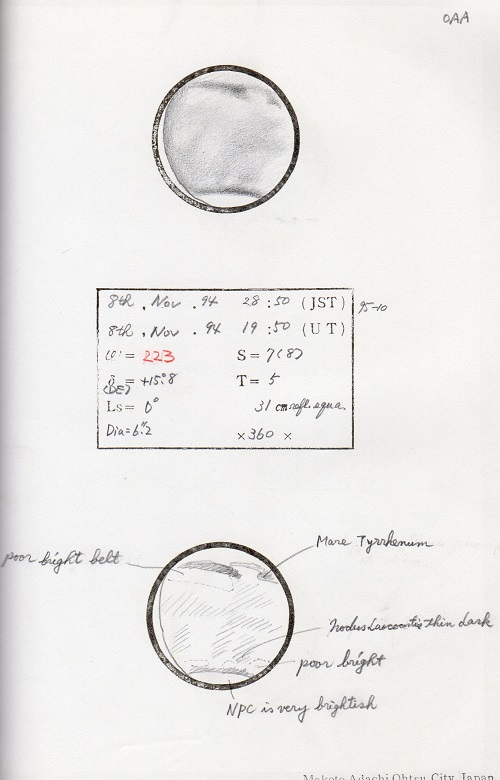 OAA
8th, Nov .94 28:50 (JST)
95-10
8th, Nov .94 19:50 (UT)
ω = 223 S = 7(8)
δ = +15.°8 T = 5
(DE)
Ls = 0° 31 cm refl. equa.
Dia = 6."2 ×360 ×
Mare Tyrrhenum
poor bright belt
Nodus Laocoontis thin dark
poor bright
NPC is very brightish
Makoto Adachi Ohtsu City, Japan